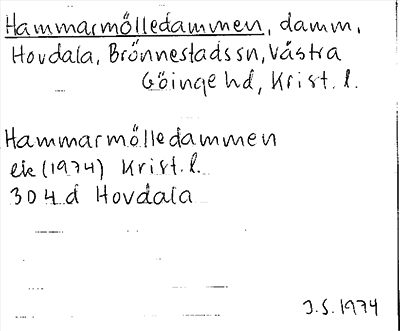 Hammarmölledammen, damm,
Hovdala, Brönnestads sn, Västra
Göinge hd, Krist. l.
Hammarmölledammen
ek (1974) Krist. l.
304 d Hovdala
J.S. 1974